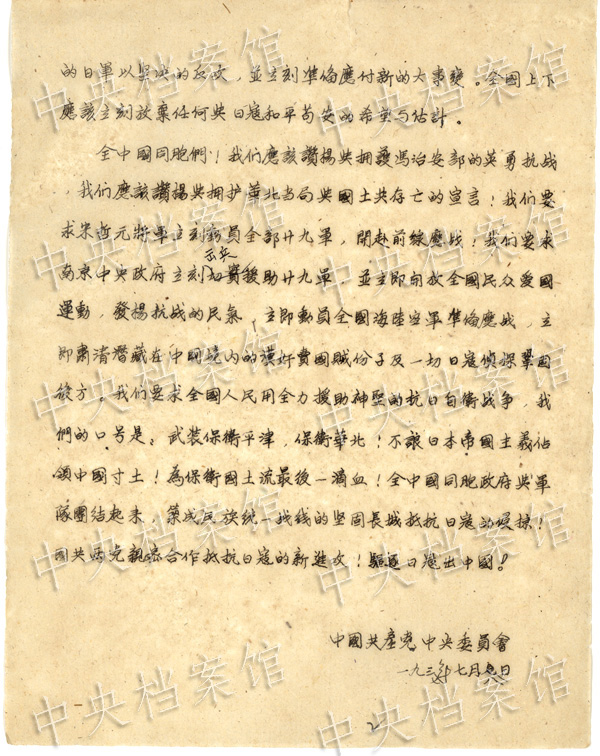 的日軍以堅決的反攻，並立刻準備應付新的大事變。全國上下
應該立刻放棄任何與日寇和平苟安的希望与估計。
全中國同胞們！我们應該讚揚與擁護馮治安部的英勇抗战
，我们應該讚揚與拥护華北当局與國土共存亡的宣言！我们要
求宋哲元將軍立刻動員全部廿九軍，開赴前綫應战！我们要求
南京中央政府立刻切實援助廿九軍，並立即開放全國民众愛國
運動，發揚抗战的民氣，立即動員全國海陸空軍準備應战，立
即肅清潛藏在中國境内的漢奸賣國賊份子及一切日寇偵探，鞏固
後方。我们要求全國人民用全力援助神聖的抗日自衛战争，我
們的口号是：武装保衛平津，保衛華北！不讓日本帝國主義佔
領中國寸土！為保衛國土流最後一滴血！全中國同胞政府與軍
隊團結起来，築成民族統一战线的坚固長城抵抗日寇的侵掠！
國共两党親密合作抵抗日寇的新進攻！驅逐日寇出中國！
中國共產党中央委員會
一九三七年七月八日
2
中央档案馆